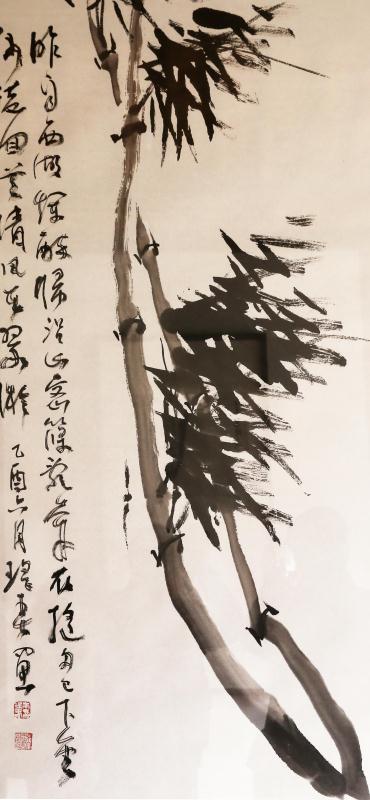 昨自西湖爛醉歸沿山密篠亂牽衣搖舟已下金
沙港回首清風在翠微 乙酉六月